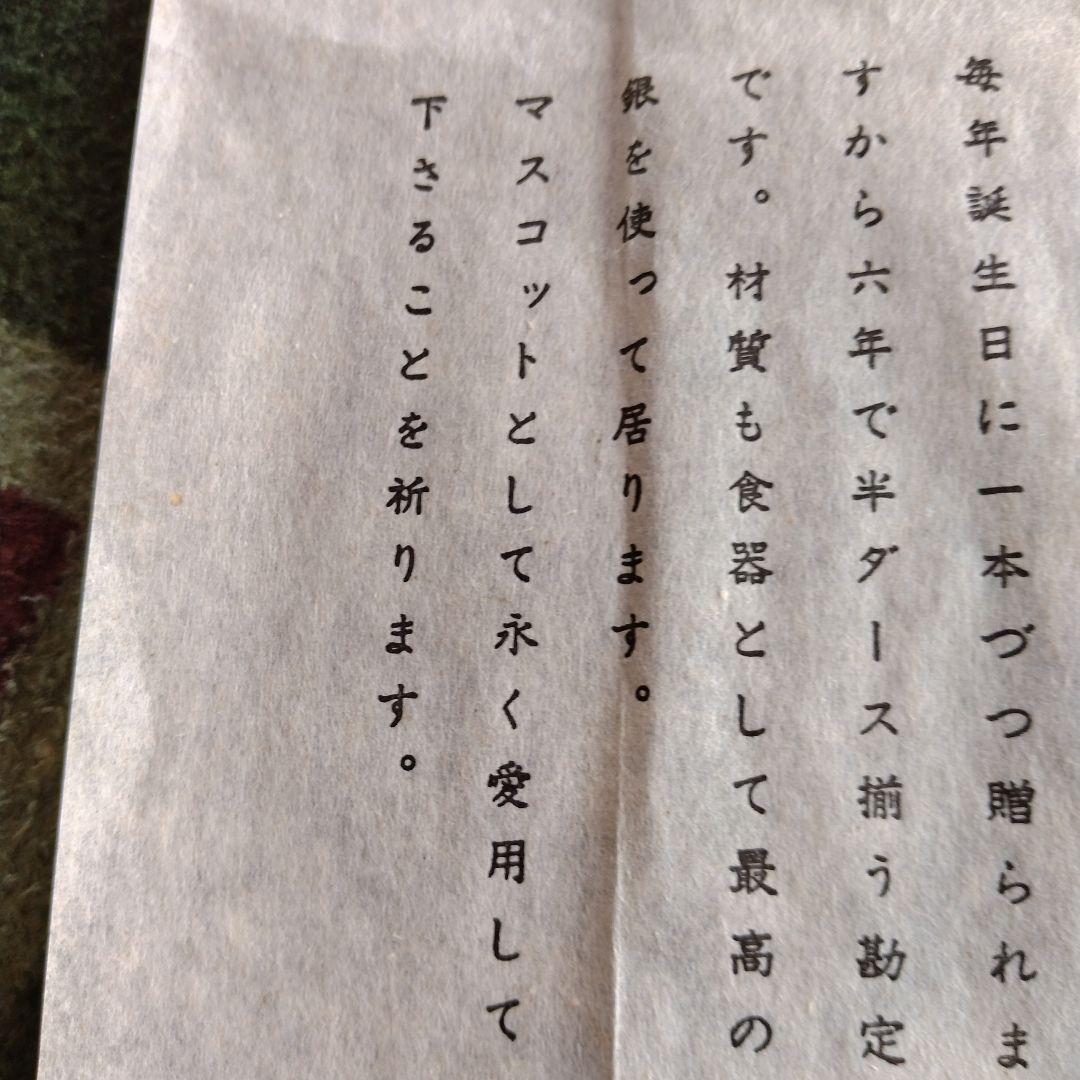 毎年誕生日に一本づつ贈られま
すから六年で半ダース揃う勘定
です。材質も食器として最高の
銀を使って居ります。
マスコットとして永く愛用して
下さることを祈ります。